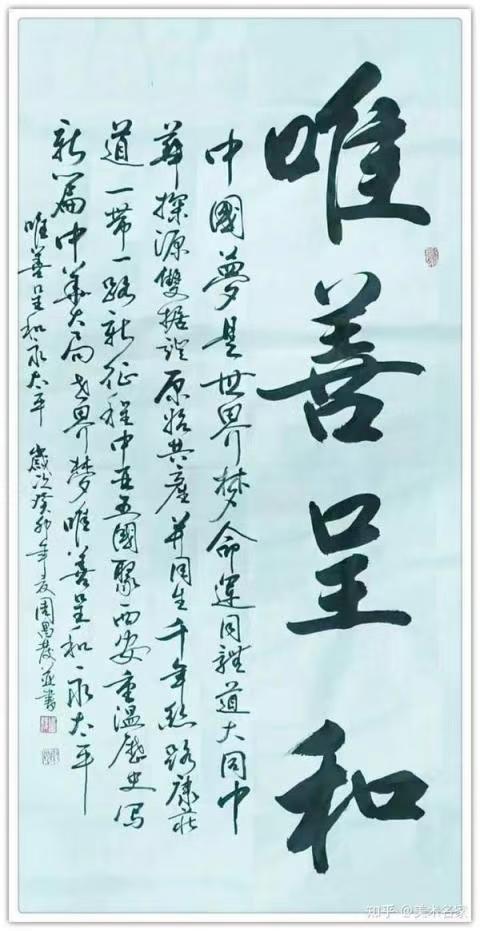 唯善呈和
中國夢是世界梦命運同軆道大同中
華探源雙据證原始共產并同生千年丝路康莊
道一帶一路新征程中亚五國聚西安重温歷史写
新篇中華大局世界梦唯善呈和永太平
唯善呈和永太平 歲次癸卯年夏周昌发並書
知乎 @美术名家